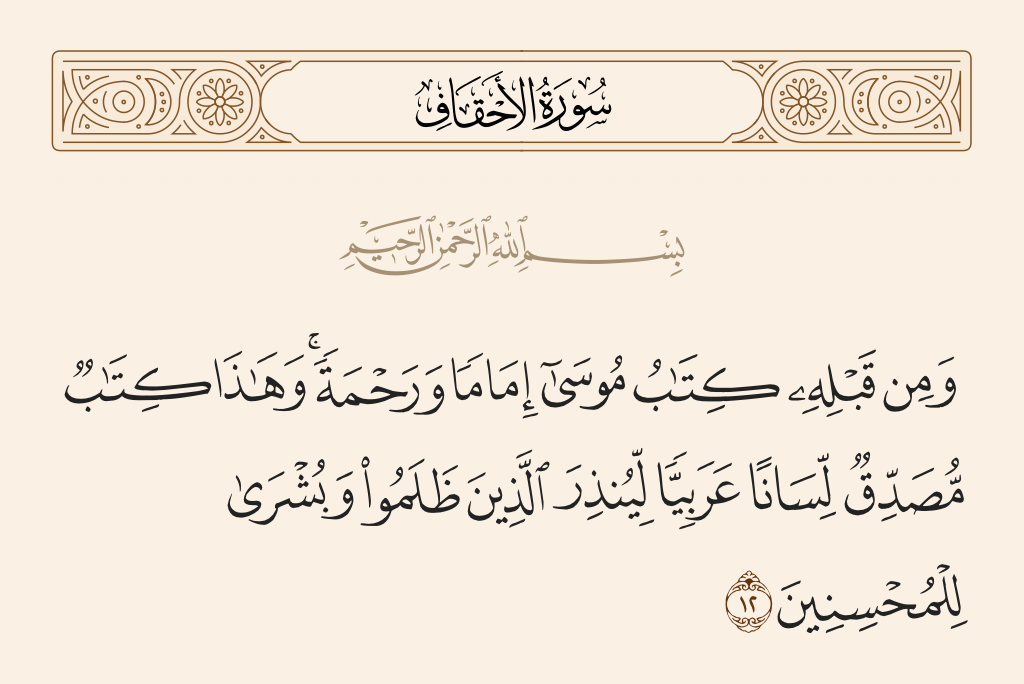 سُورَةُ الأَحْقَافِ
بِسْمِ ٱللَّهِ ٱلرَّحْمَٰنِ ٱلرَّحِيمِ
وَمِن قَبْلِهِۦ كِتَٰبُ مُوسَىٰٓ إِمَامًا وَرَحْمَةً ۚ وَهَٰذَا كِتَٰبٌ
مُّصَدِّقٌ لِّسَانًا عَرَبِيًّا لِّيُنذِرَ ٱلَّذِينَ ظَلَمُوا۟ وَبُشْرَىٰ
لِلْمُحْسِنِينَ ١٢